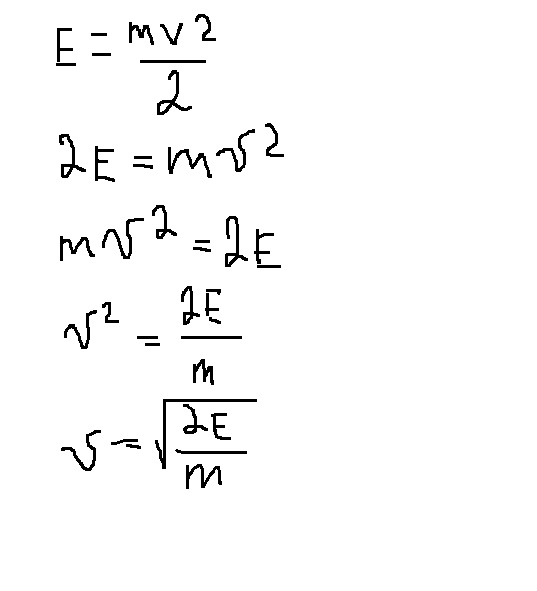 E = mv²/2
2E = mv²
mv² = 2E
v² = 2E/m
v = √(2E/m)